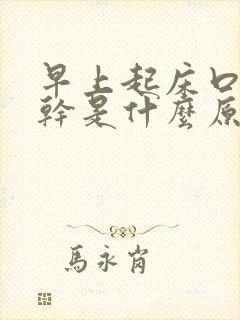 早上起床口
幹是什麼原
馬永肖